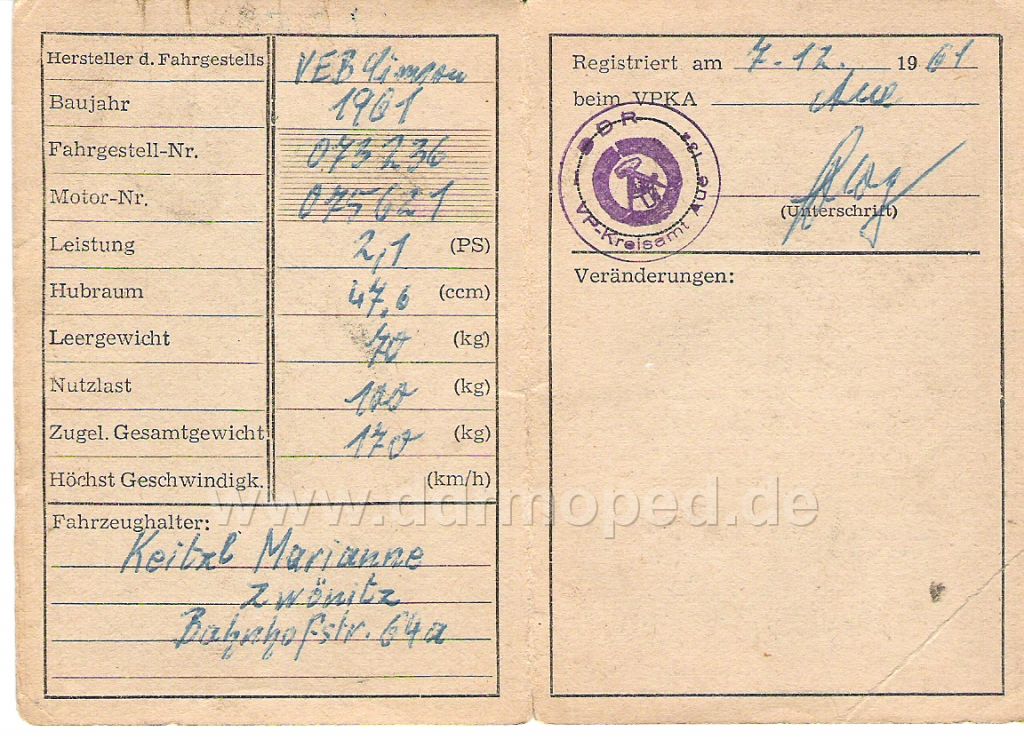 Hersteller d. Fahrgestells VEB Simson
Baujahr 1961
Fahrgestell-Nr. 073236
Motor-Nr. 075621
Leistung 2,1 (PS)
Hubraum 47,6 (ccm)
Leergewicht 70 (kg)
Nutzlast 100 (kg)
Zugel. Gesamtgewicht 170 (kg)
Höchst Geschwindigk. (km/h)
Fahrzeughalter:
Keitzl Marianne
Zwönitz
Bahnhofstr. 64a
Registriert am 7.12. 1961
beim VPKA Aue
(Unterschrift)
DDR
VP-Kreisamt Aue
Veränderungen:
www.ddrmoped.de